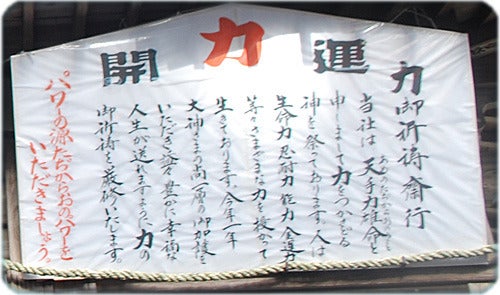 開力運
力御祈祷齋行
当社は天手力雄命と
あめのたぢからおのみこと
申しまして力をつかさどる
神を祭っております。人は
生命力忍耐力能力金運力
等々さまざまな力を授かって
生きております。今年一年
大神さまの高一層の御加護を
いただき益々豊かに幸福な
人生が送れますように力の
御祈祷を厳修いたします。
パワーの源たぢからおのパワーを
いただきましょう。